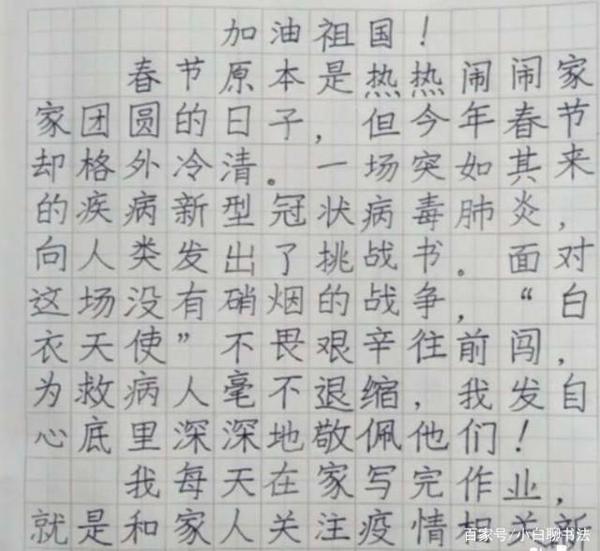 加油祖国！
春节原本是热热闹闹家
家团圆的日子，但今年春节
却格外冷清。一场突如其来
的疾病新型冠状病毒肺炎，
向人类发出了挑战书。面对
这场没有硝烟的战争，“白
衣天使”不畏艰辛往前闯，
为救病人毫不退缩，我发自
心底里深深地敬佩他们！
我每天在家写完作业，
就是和家人关注疫情相关新
百家号/小白聊书法